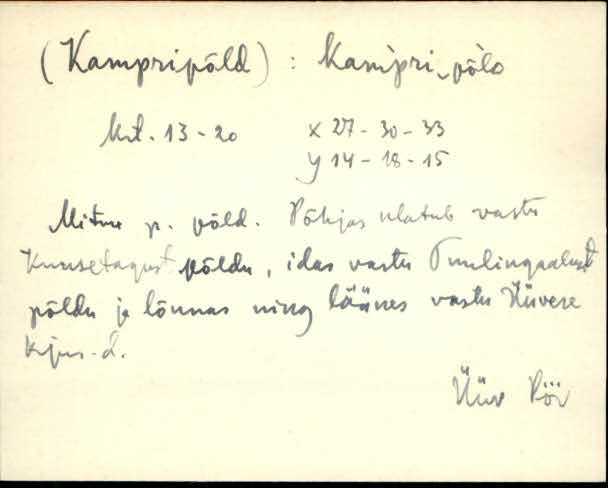 (Kampripõld) : kam̀pri‿põlo
krt. 13-20 x 27-30-33
y 14-18-15
Mitme p. põld. Põhjas ulatub vastu
Kuusetagust põldu, idas vastu Tuulingaalust
põldu ja lõunas ning läänes vastu Üüvere
Üüv Pöi